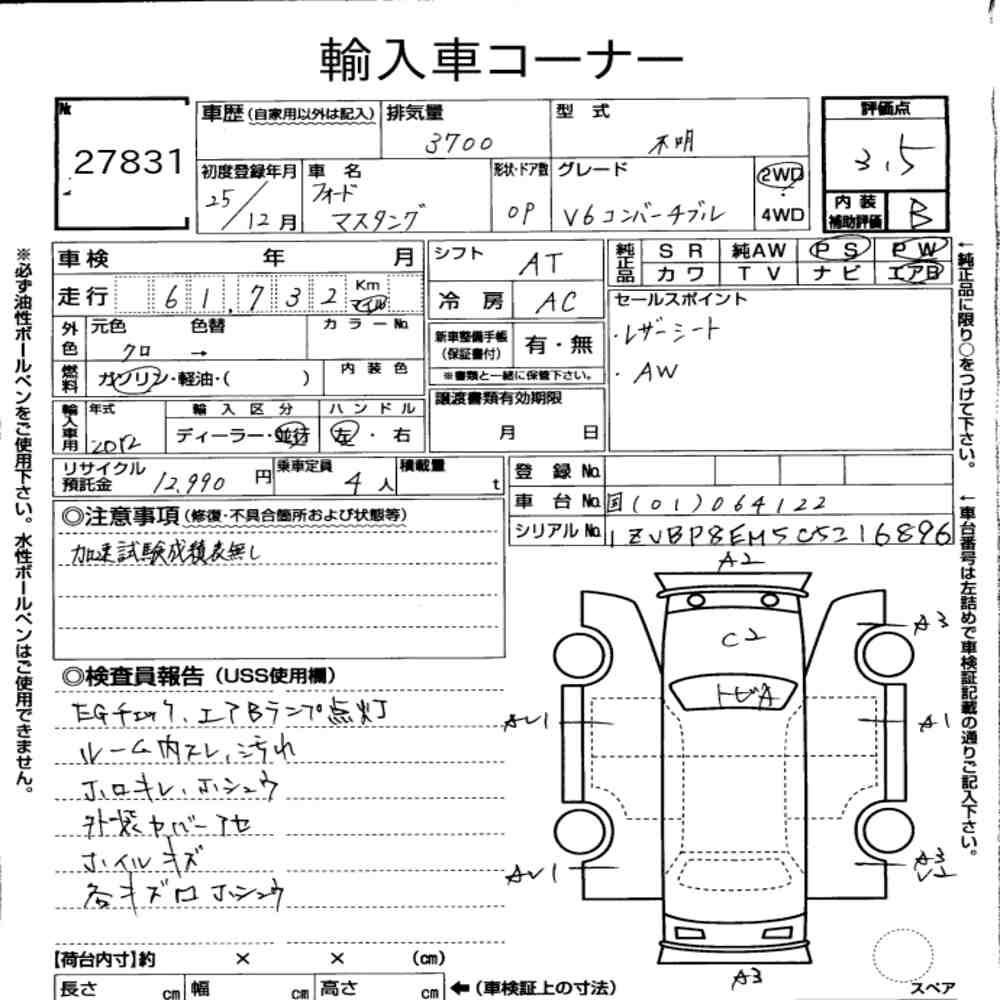 輸入車コーナー
№ 27831
車歴 (自家用以外は記入) 排気量 3700 型式 不明
初度登録年月 25/12月 車名 フォード マスタング 形状・ドア数 OP グレード V6 コンバーチブル 2WD 4WD
評価点 3.5
内装補助評価 B
車検 年 月
走行 61,732 Km マイル
外色 元色 クロ 色替 → カラーNo.
燃料 ガソリン・軽油・( ) 内装色
輸入車用 年式 2012 輸入区分 ディーラー・並行 ハンドル 左・右
シフト AT
冷房 AC
新車整備手帳(保証書付) 有・無
※書類と一緒に保管下さい。
譲渡書類有効期限 月 日
純正品 SR 純AW PS PW
カワ TV ナビ エアB
セールスポイント
・レザーシート
・AW
リサイクル預託金 12,990円 乗車定員 4人 積載量 t
登録No.
車台No. 国(01)064122
シリアルNo. 1ZVBP8EM5C5216896
◎注意事項 (修復・不具合箇所および状態等)
加速試験成績表無し
◎検査員報告 (USS使用欄)
EGチェック、エアBランプ点灯
ルーム内スレ、汚れ
ホロキレ、ホシュウ
外装カバーアセ
ホイルキズ
各キズロホシュウ
A2
C2
トビA
A3
A1
A3
V2
A3
【荷台内寸】約 × × (cm)
長さ cm 幅 cm 高さ cm ←(車検証上の寸法)
スペア
※必ず油性ボールペンをご使用下さい。水性ボールペンはご使用できません。
←純正品に限り○をつけて下さい。
←車台番号は左詰めで車検証記載の通りご記入下さい。